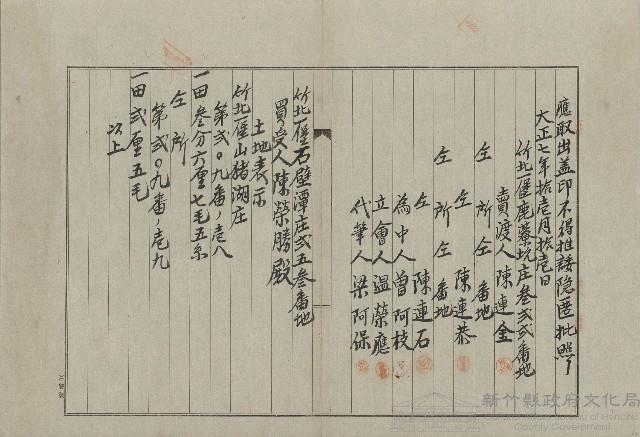 應取出蓋印不得推諉隐匿批照
大正七年拾壱月拾壱日
竹北一堡鹿藔坑庄叁弍弍番地
賣渡人陳連金
仝所仝番地
仝陳連恭
仝所仝番地
仝陳連石
為中人曾阿枝
立會人温榮應
代筆人梁阿保
竹北一堡石壁潭庄弍五叁番地
買受人陳榮勝殿
土地表示
竹北一堡山猪湖庄
第弍〇九番ノ壱八
一田叁分六厘七毛五糸
仝所
第弍〇九番ノ壱九
一田弍厘五毛
以上
新竹縣政府文化局
County Government